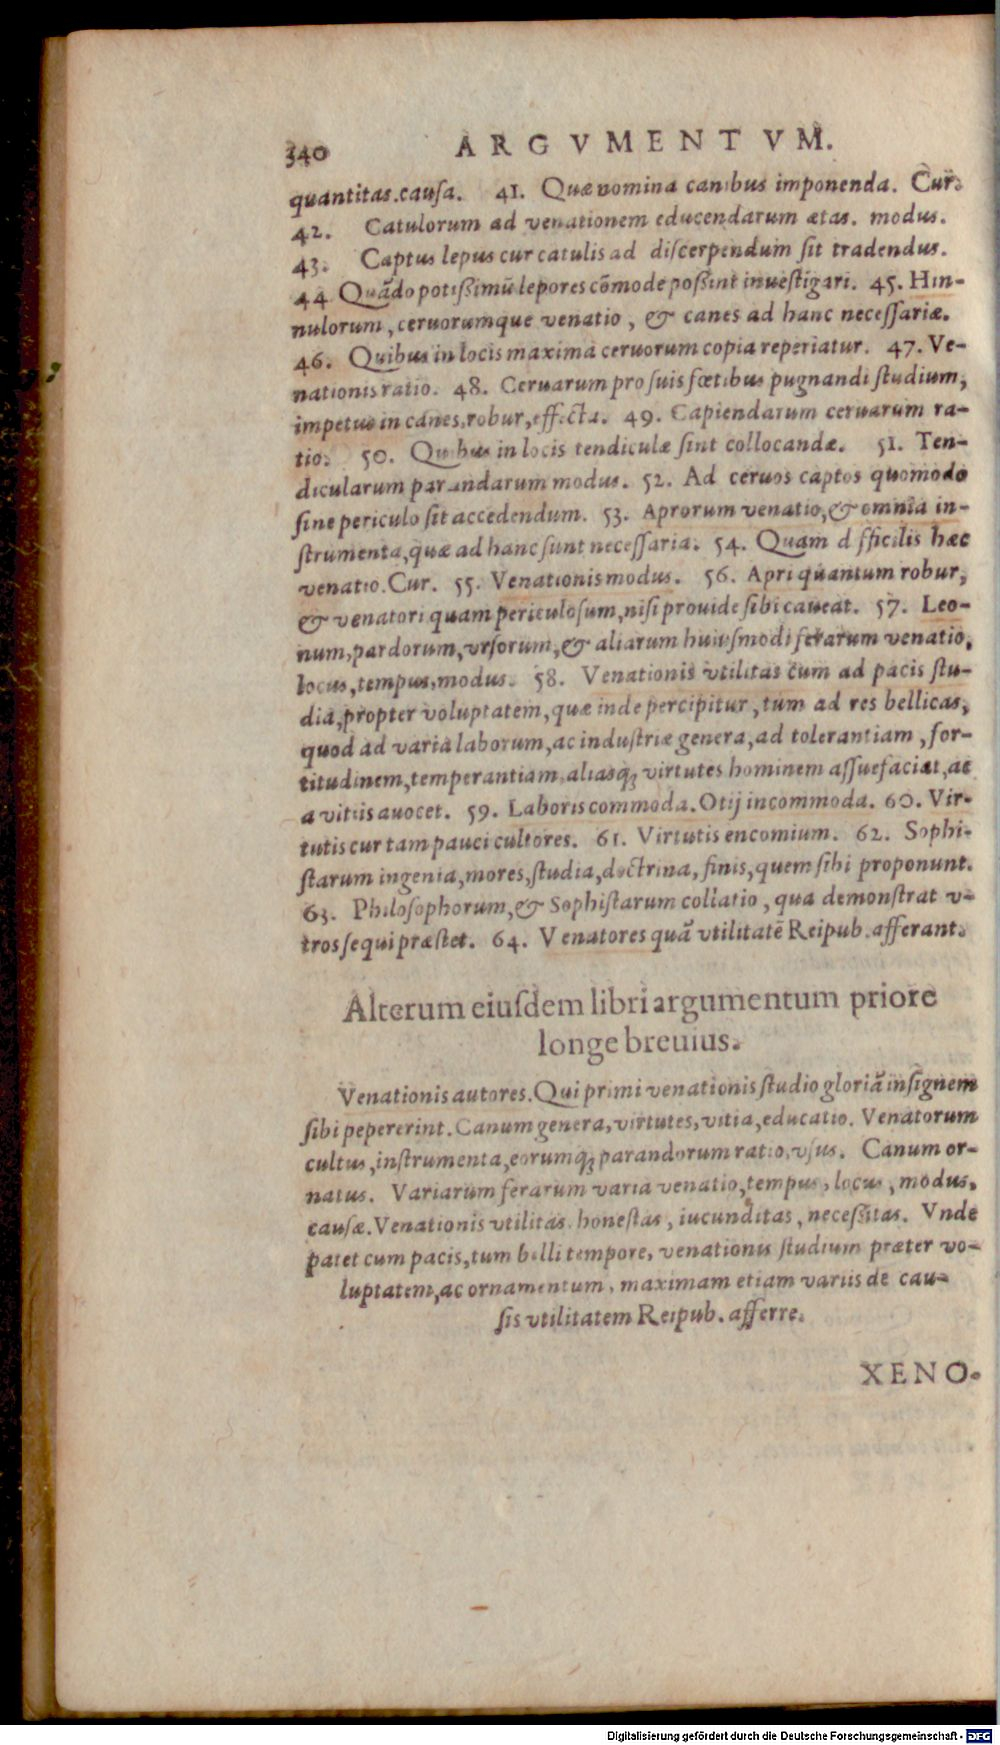 340 ARGVMENTVM.
quantitas.causa. 41. Quæ nomina canibus imponenda. Cur.
42. Catulorum ad venationem educendarum ætas. modus.
43. Captus lepus cur catulis ad discerpendum sit tradendus.
44 Quãdo potissimũ lepores cõmode possint inuestigari. 45. Hin-
nulorum, ceruorumque venatio, & canes ad hanc necessariæ.
46. Quibus in locis maxima ceruorum copia reperiatur. 47. Ve-
nationis ratio. 48. Ceruarum pro suis fœtibus pugnandi studium,
impetus in canes, robur, effecta. 49. Capiendarum ceruarum ra-
tio. 50. Quibus in locis tendiculæ sint collocandæ. 51. Ten-
dicularum parandarum modus. 52. Ad ceruos captos quomodo
sine periculo sit accedendum. 53. Aprorum venatio, & omnia in-
strumenta, quæ ad hanc sunt necessaria. 54. Quam d fficilis hæc
venatio. Cur. 55. Venationis modus. 56. Apri quantum robur,
& venatori quam periculosum, nisi prouide sibi caueat. 57. Leo-
num, pardorum, vrsorum, & aliarum huiusmodi ferarum venatio,
locus, tempus, modus. 58. Venationis vtilitas cum ad pacis stu-
dia, propter voluptatem, quæ inde percipitur, tum ad res bellicas,
quod ad varia laborum, ac industriæ genera, ad tolerantiam, for-
titudinem, temperantiam, aliasq; virtutes hominem assuefaciat, ac
a vitiis auocet. 59. Laboris commoda. Otij incommoda. 60. Vir-
tutis cur tam pauci cultores. 61. Virtutis encomium. 62. Sophi-
starum ingenia, mores, studia, doctrina, finis, quem sibi proponunt.
63. Philosophorum, & Sophistarum collatio, qua demonstrat v-
tros sequi præstet. 64. Venatores quã vtilitatẽ Reipub. afferant.
Alterum eiusdem libri argumentum priore
longe breuius.
Venationis autores. Qui primi venationis studio gloriã insignem
sibi pepererint. Canum genera, virtutes, vitia, educatio. Venatorum
cultus, instrumenta, eorumq; parandorum ratio, vsus. Canum or-
natus. Variarum ferarum varia venatio, tempus, locus, modus,
causæ. Venationis vtilitas. honestas, iucunditas, necessitas. Vnde
patet cum pacis, tum belli tempore, venationis studium præter vo-
luptatem, ac ornamentum, maximam etiam variis de cau-
sis vtilitatem Reipub. afferre.
XENO-
Digitalisierung gefördert durch die Deutsche Forschungsgemeinschaft - DFG